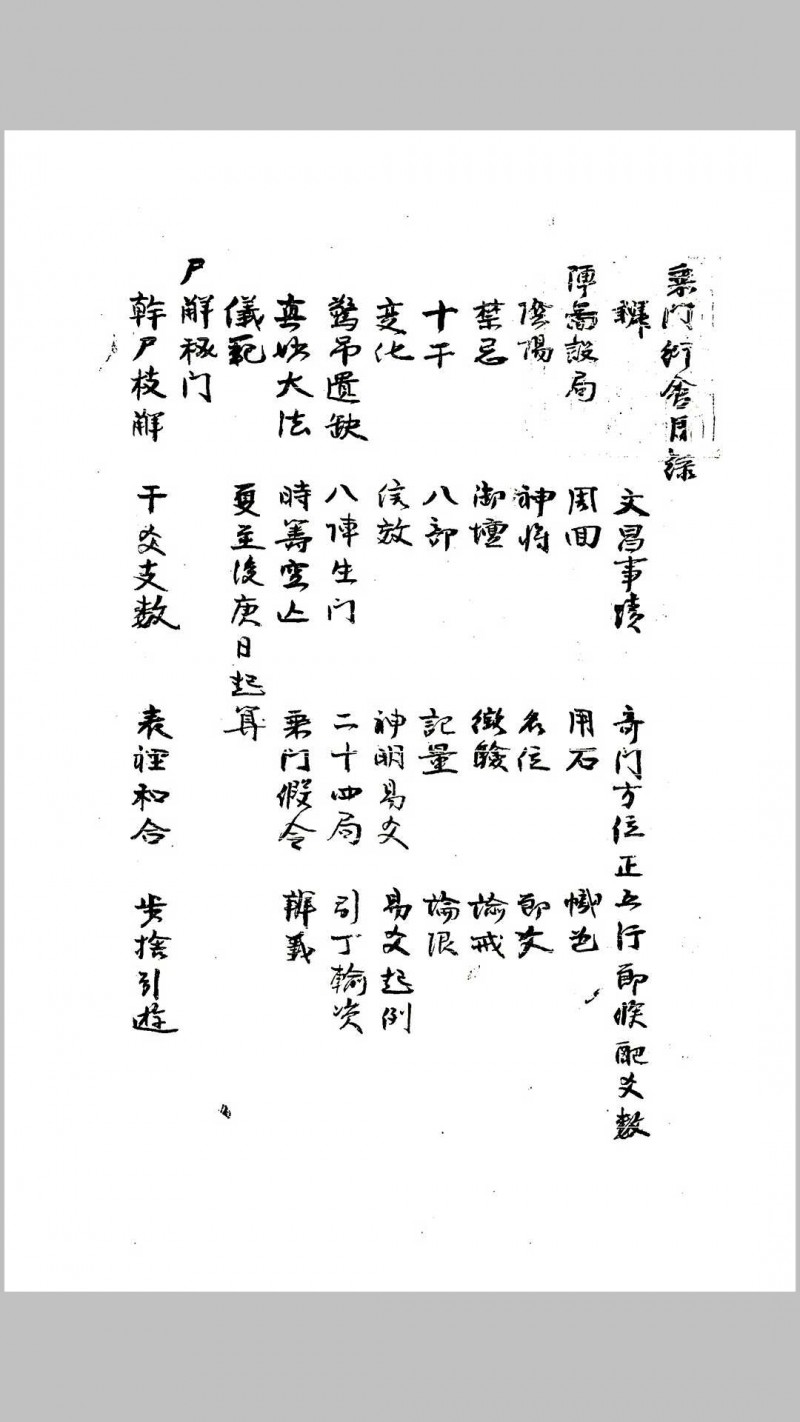 乘门衍舍目録
辯 文昌事蹟 奇门方位正五行節候配爻数
陣啚設局 周回 用石 幟色
陰陽 神将 名位 節爻
禁忌 御壇 徵驗 諭戒
十干 八部 記量 論限
变化 信效 神明易爻 易爻起例
驚吊遺缺 八陣生门 二十四局 引丁輸次
真妙大法 時籌空亡 乘门假令 辯義
儀範 夏至後庚日起算
尸解秘门
幹尸枝解 干爻支数 表裡和合 步捨引遊